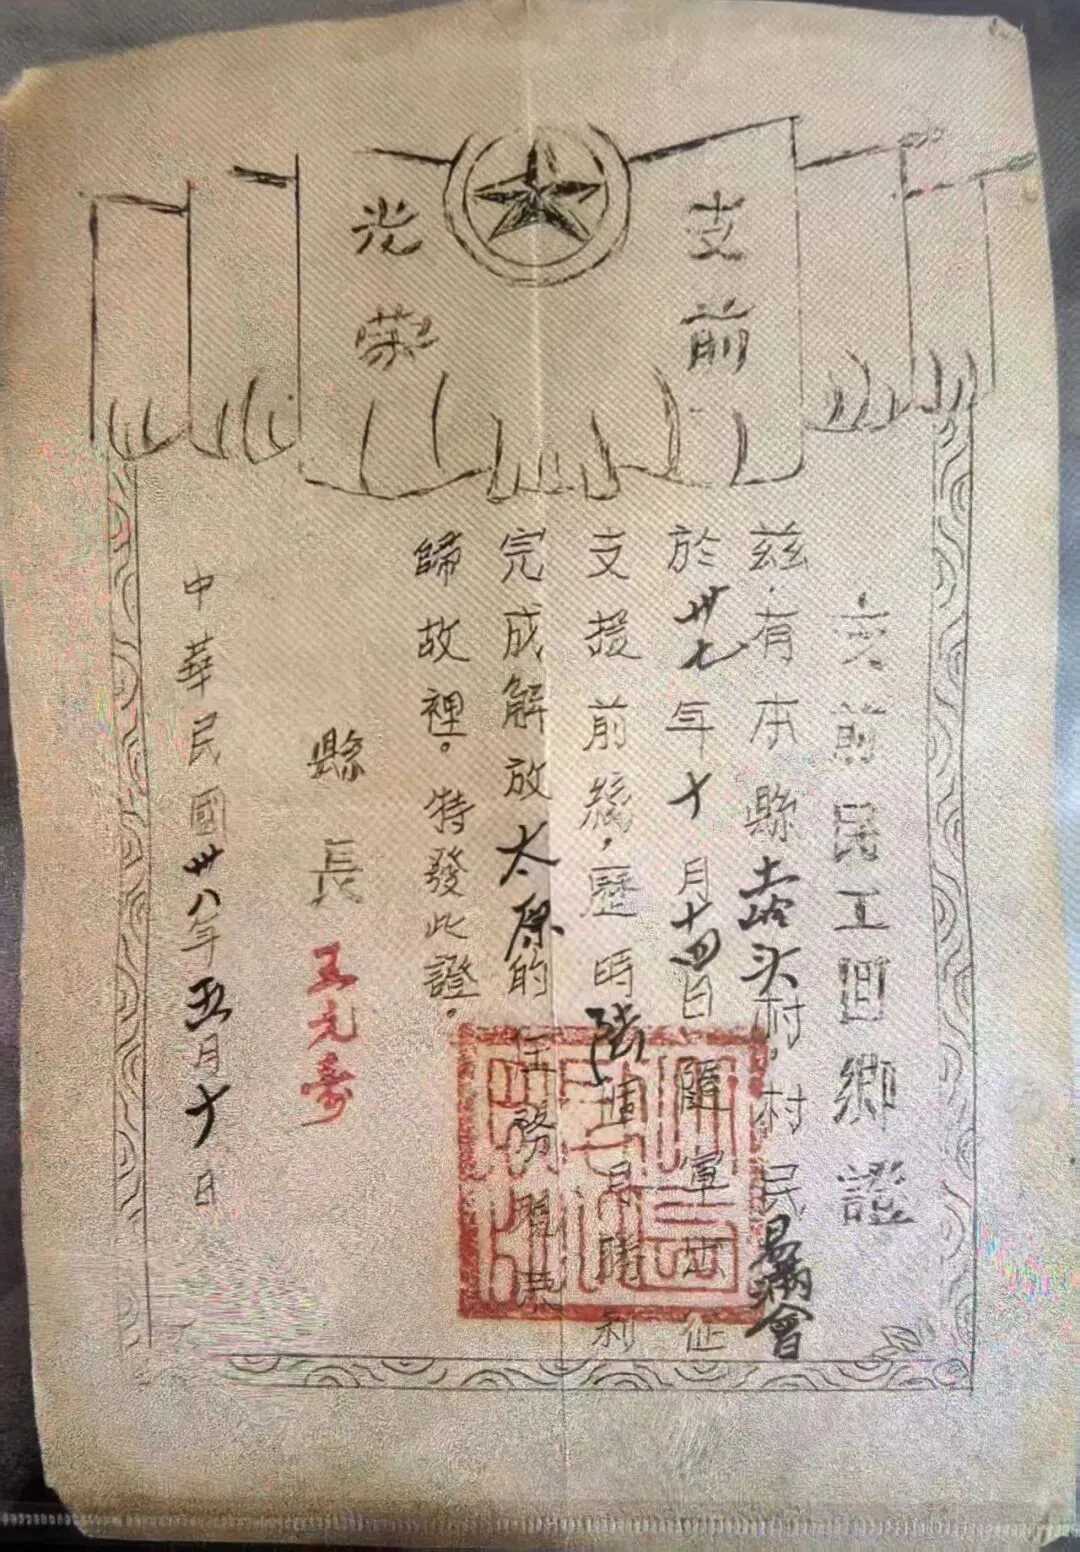 支前
光荣
支前民工回鄉證
兹有本縣土峪头村,村民吕滿會
於卅七年十月十四日隨軍出征
支援前綫,歷時陆個月勝利
完成解放太原的任務既荣
歸故裡。特發此證。
縣長 王元寿
中華民國卅八年五月十日